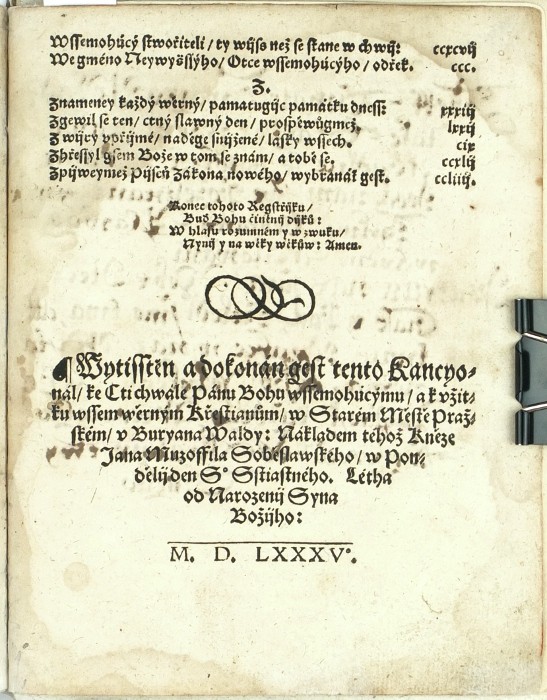 Wssemohúcý stwořiteli/ ty wijss než se stane w chwij: ccxcvij
We gméno Neywyššijho/ Otce wssemohúcýho/ odřek. ccc.
Z.
Znameney každý wěrný/ pamatugijc památku dness: xxxiij
Zgewil se ten/ ctný slawný den/ prospěwůgmež. lxxij
Z wijry vpřijmé/ naděge snijžené/ lásky wssech. cix
Zhřessyl gsem Bože w tom se znám/ a tobě se. ccxlij
Zpijweymež Pijseň Zákona nowého/ wybranáť gest. ccliiij.
Konec tohoto Regstřijku/
Buď Bohu činěnij dijků:
W hlasu rozumném y w zwuku/
Nynij y na wěky wěkůw: Amen.
¶ Wytisstěn a dokonán gest tento Kancyo-
nál/ ke Cti chwále Pánu Bohu wssemohúcýmu/ a k vžit-
ku wssem wěrným Křestianům/ w Starém Městě Praž-
ském/ v Buryana Waldy: Nákladem téhož Kněze
Jana Muzoffila Soběslawského/ w Pon-
dělij den S° Sstiastného. Létha
od Narozenij Syna
Božijho:
M. D. LXXXV°.